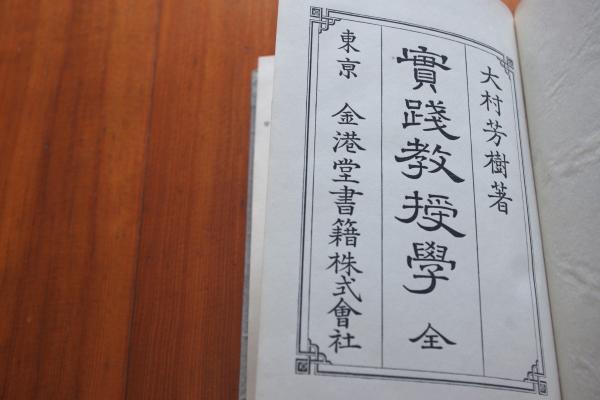 大村芳樹著
實踐教授學 全
東京 金港堂書籍株式會社